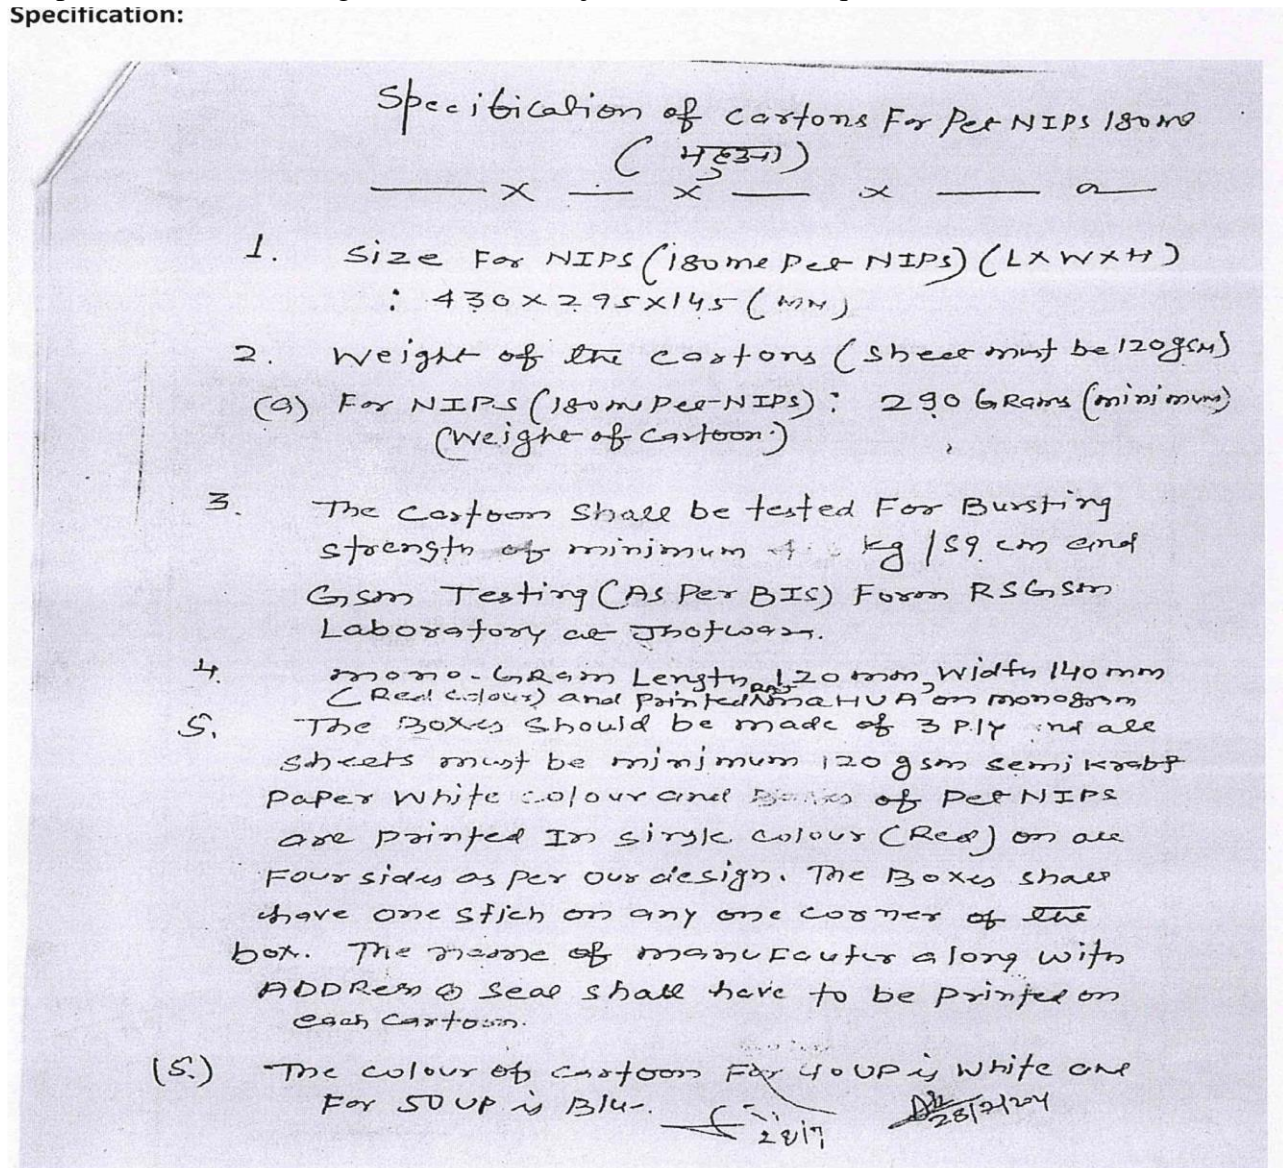 Specification:
Specification of Cartons For Pet NIPS 180 ml
(महुआ)
x x x
1. Size For NIPS (180 ml Pet NIPS) (LXWXH)
: 430X295X145 (MM)
2. Weight of the Cartons (Sheet must be 120gsm)
(a) For NIPS (180 ml Pet NIPS): 290 GRams (minimum)
(Weight of Cartoon.)
3. The Cartoon Shall be tested For Bursting
strength of minimum 4. kg /sq cm and
Gsm Testing (As Per BIS) Form RSGSM
Laboratory at Jhotwara.
4. mono-GRam Length 120 mm, Width 140 mm
(Red Colour) and Printed MAHUA on monogram
5. The Boxes Should be made of 3 Ply and all
Sheets must be minimum 120 gsm semi Kraft
Paper White Colour and Boxes of Pet NIPS
are printed In Single colour (Red) on all
Four sides as Per our design. The Boxes shall
have one stich on any one corner of the
box. The name of manufauter along with
ADDRess @ Seal shall have to be Printed on
each Cartoon.
(5.) The colour of Cartoon For 40UP is White and
For 50 UP is Blu-.
28/7 28/7/204